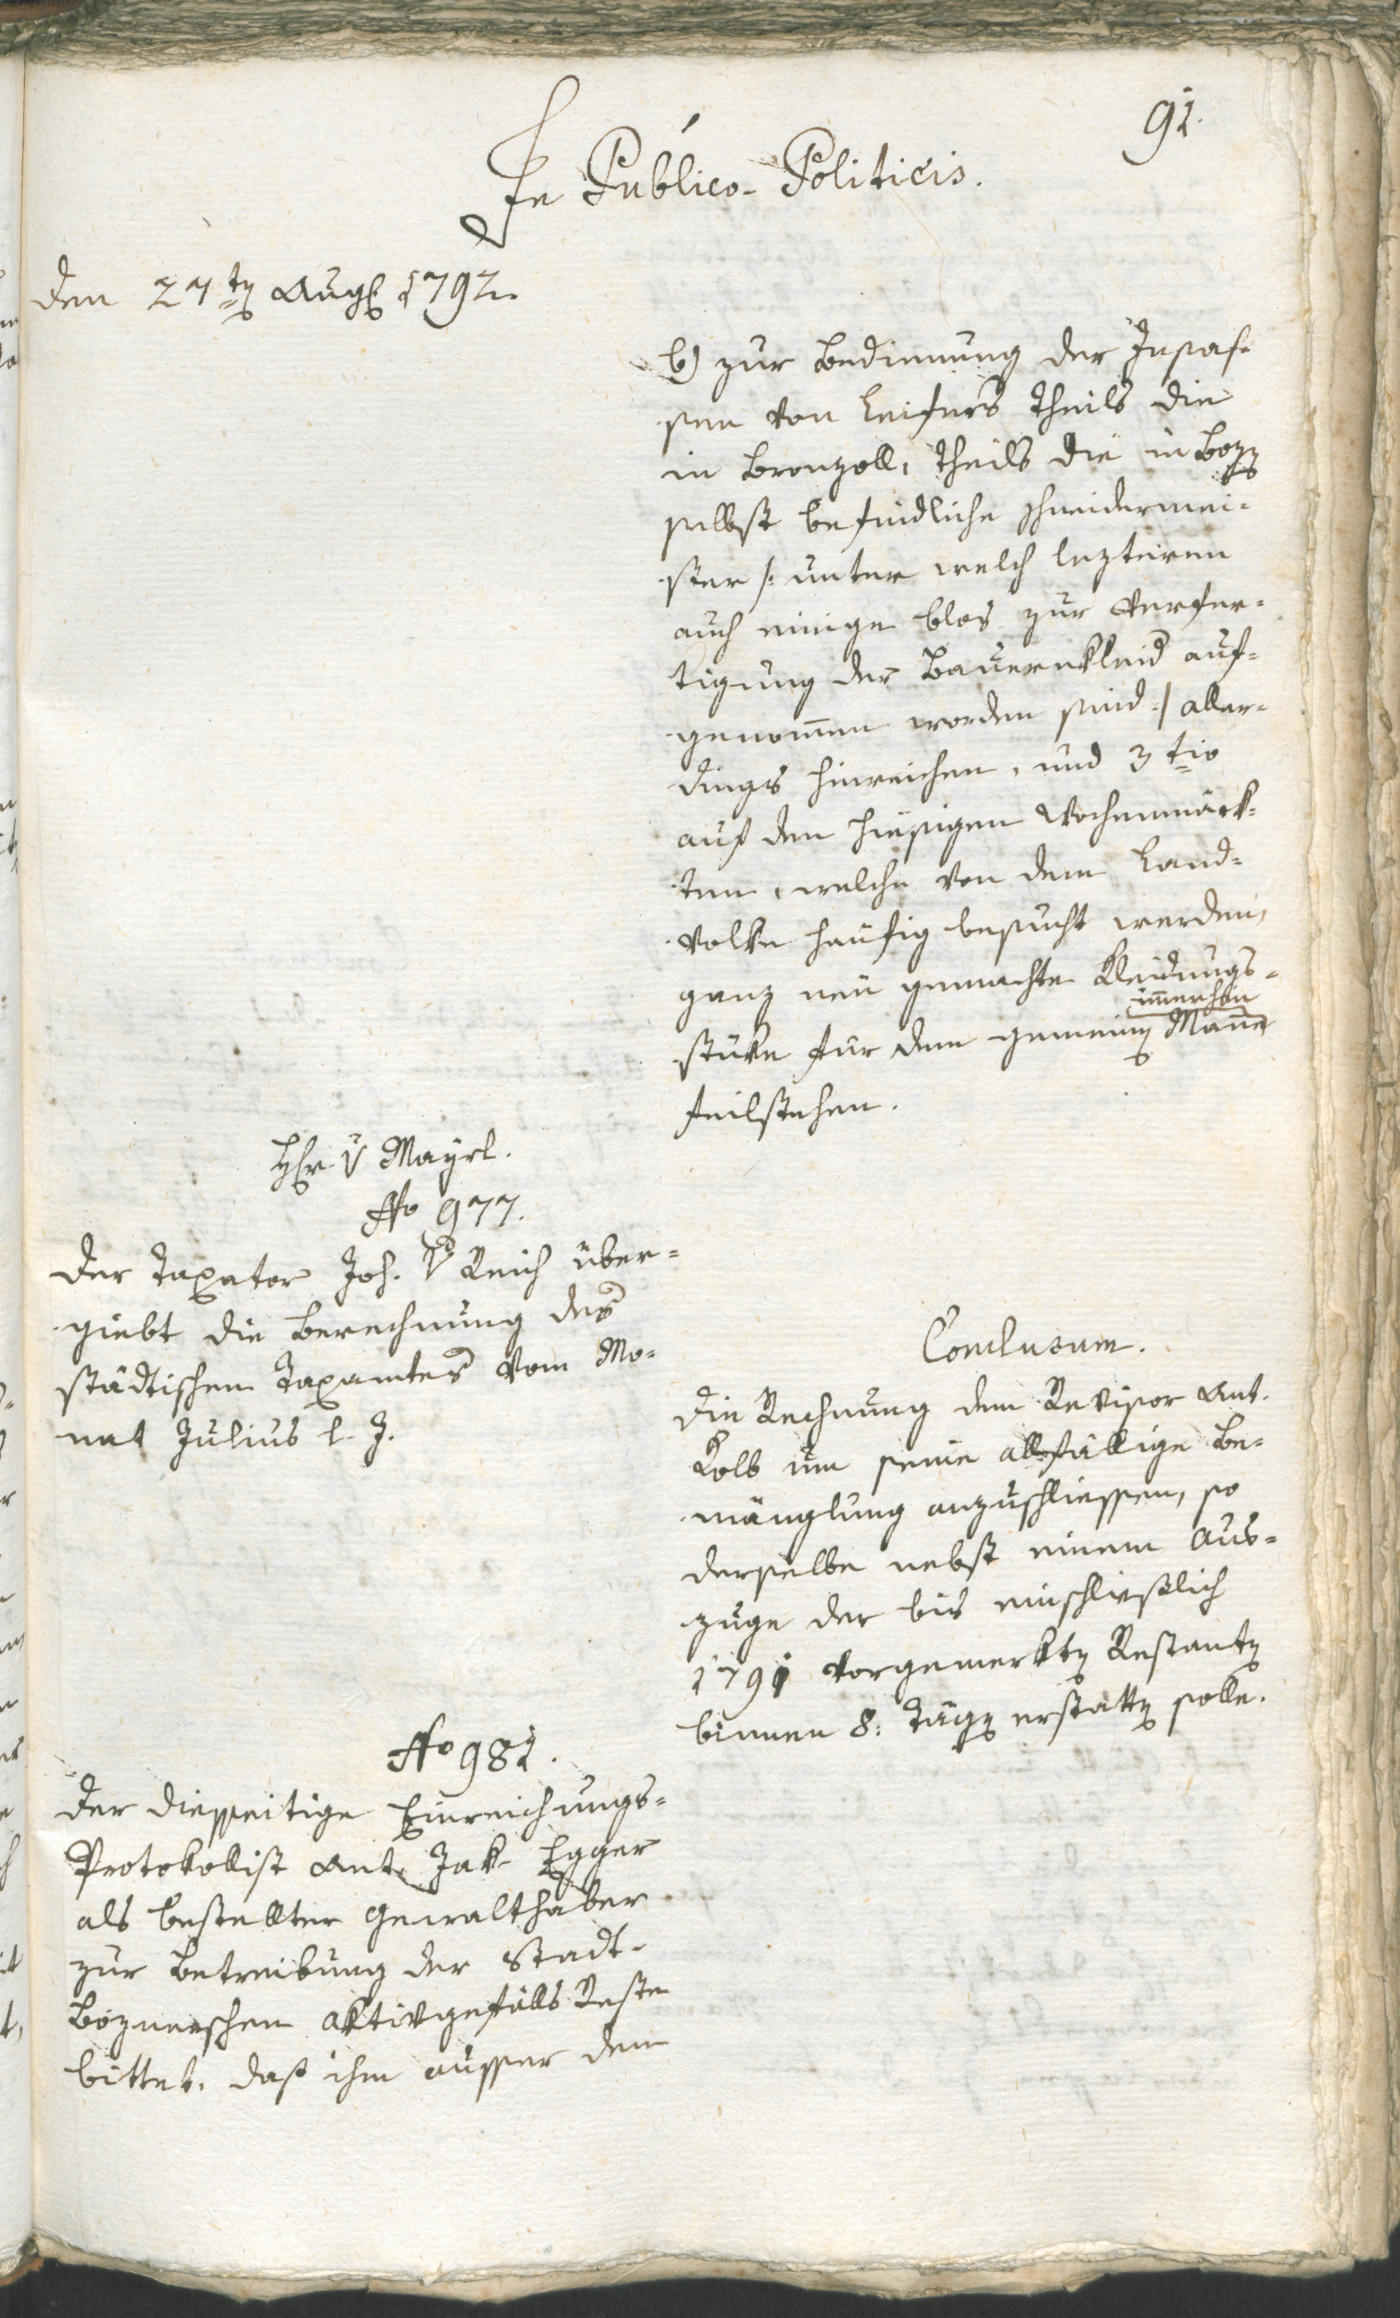 91.
In Publico-Politicis.
den 27ten Aug. 1792.
b) zur Bedienung der Insas-
sen von Leifers theils die
in Bronzoll, theils die in Bozen
selbst befindliche Schneidermei-
ster /: unter welch lezteren
auch einige blos zur Verfer-
tigung der Bauernkleid auf-
genommen worden sind :/ aller-
dings hinreichen, und 3tio
auf den hiesigen Wochenmärk-
ten, welche von dem Land-
volke häufig besucht werden,
ganz neu gemachte Kleidungs-
stüke für dem gemeinen Mann immerhin
feilstehen.
Hr. v Mayrl.
No 977.
Der Taxator Joh. v Reich über-
giebt die Berechnung des
städtischen Taxamtes vom Mo-
nat Julius l. J.
Conclusum.
Die Rechnung dem Revisor Ant.
Kolb um seine allfällige Be-
mänglung anzuschliessen, so
derselbe nebst einem Aus-
zuge der bis einschließlich
1791 vorgemerkten Restanten
binnen 8: Tägen erstatten solle.
No 981.
Der diesseitige Einreichungs-
Protokollist Ant. Jak. Egger
als bestellter Gewalthaber
zur Betreibung der Stadt-
Boznerschen Aktivgefälls Reste
bittet, daß ihm ausser dem